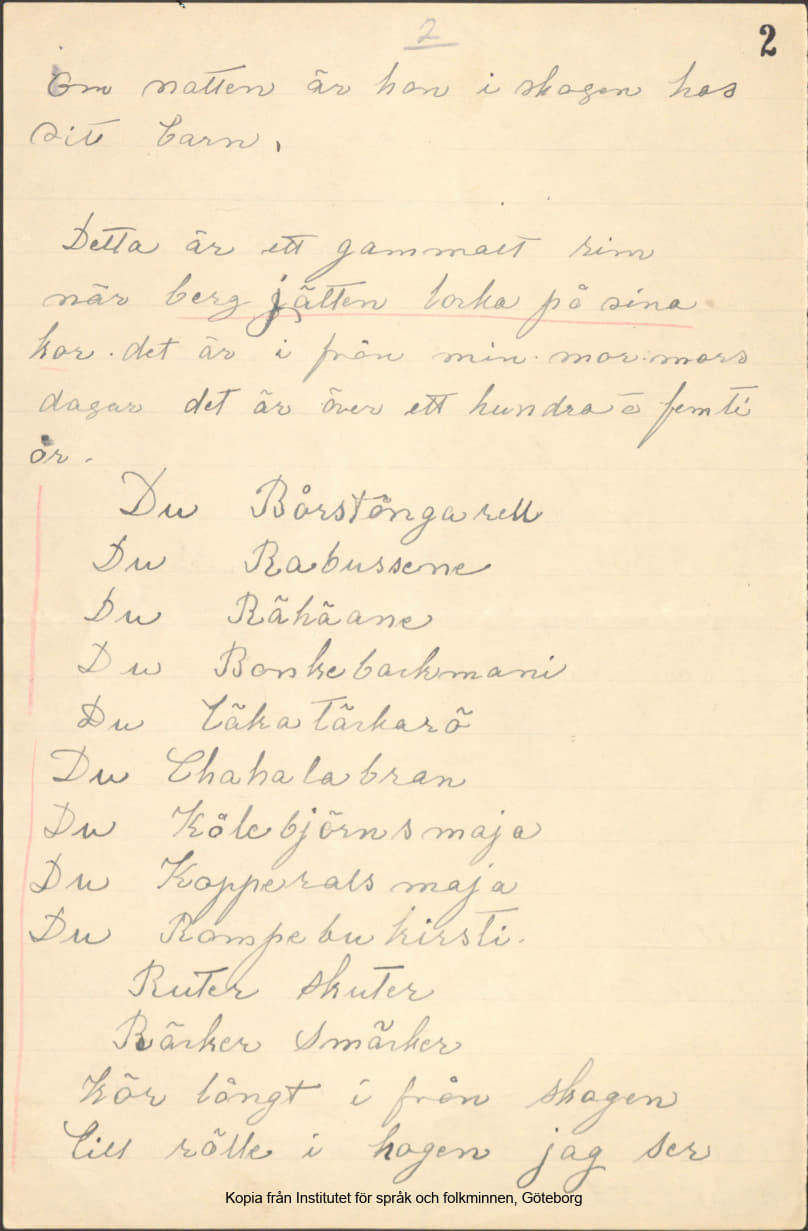 2
2
Om natten är hon i skogen hos
sitt barn.
Detta är ett gammalt rim
när berg jätten locka på sina
kor. det är i från min. mor. mors
dagar det är över ett hundra å femti
år.
Du Bårstångarell
Du Rabussene
Du Råhåane
Du Bonkebackmani
Du
Du Chahalabran
Du Kölebjörnsmaja
Du Kopperalsmaja
Du Rompebukirsti.
Ruter skuter
Bärker smärker
Kör långt i från skogen
till rölle i hagen jag ser
Kopia från Institutet för språk och folkminnen, Göteborg